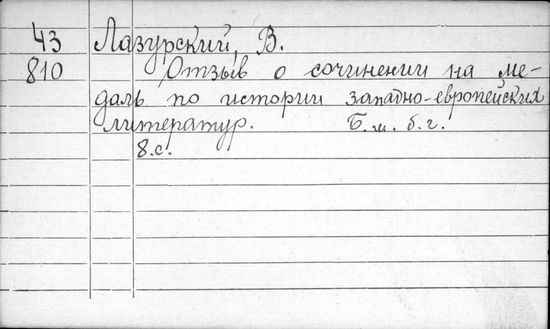 43 Лазурский, В.
810 Отзыв о сочинении на ме-
даль по истории западно-европейских
литератур. Б. м. б. г.
8.с.